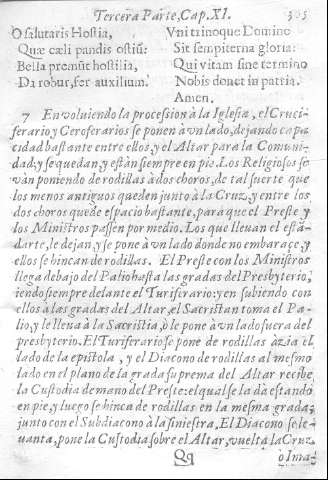 Tercera Parte, Cap. XI. 305
O salutaris Hostia,
Quæ cæli pandis ostiũ:
Bella premũt hostilia,
Da robur, fer auxilium.
Vni trinoque Domino
Sit sempiterna gloria:
Qui vitam sine termino
Nobis donet in patria.
Amen.
7 En voluiendo la procession à la Iglesia, el Cruci-
ferario y Ceroferarios se ponen à vn lado, dejando capa
cidad bastante entre ellos, y el Altar para la Comuni-
dad; y se quedan, y estàn siempre en pie. Los Religiosos se
vàn poniendo de rodillas à dos choros, de tal suerte que
los menos antiguos queden junto à la Cruz, y entre los
dos choros quede espacio bastante, para que el Preste y
los Ministros passen por medio. Los que lleuan el estã-
darte, le dejan, y se pone à vn lado donde no embarace, y
ellos se hincan de rodillas. El Preste con los Ministros
llega debajo del Palio hasta las gradas del Presbyterio,
iendo siempre delante el Turiferario: y en subiendo con
ellos à las gradas del Altar, el Sacristan toma el Pa-
lio, y le lleua à la Sacristia, ò le pone à vn lado fuera del
presbyterio. El Turiferario se pone de rodillas àzia el
lado de la epistola, y el Diacono de rodillas al mesmo
lado en el plano de la grada suprema del Altar recibe
la Custodia de mano del Preste: el qual se la dà estando
en pie, y luego se hinca de rodillas en la mesma grada;
junto con el Subdiacono à la siniestra. El Diacono se le-
uanta, pone la Custodia sobre el Altar, vuelta la Cruz
Qq ò Ima-